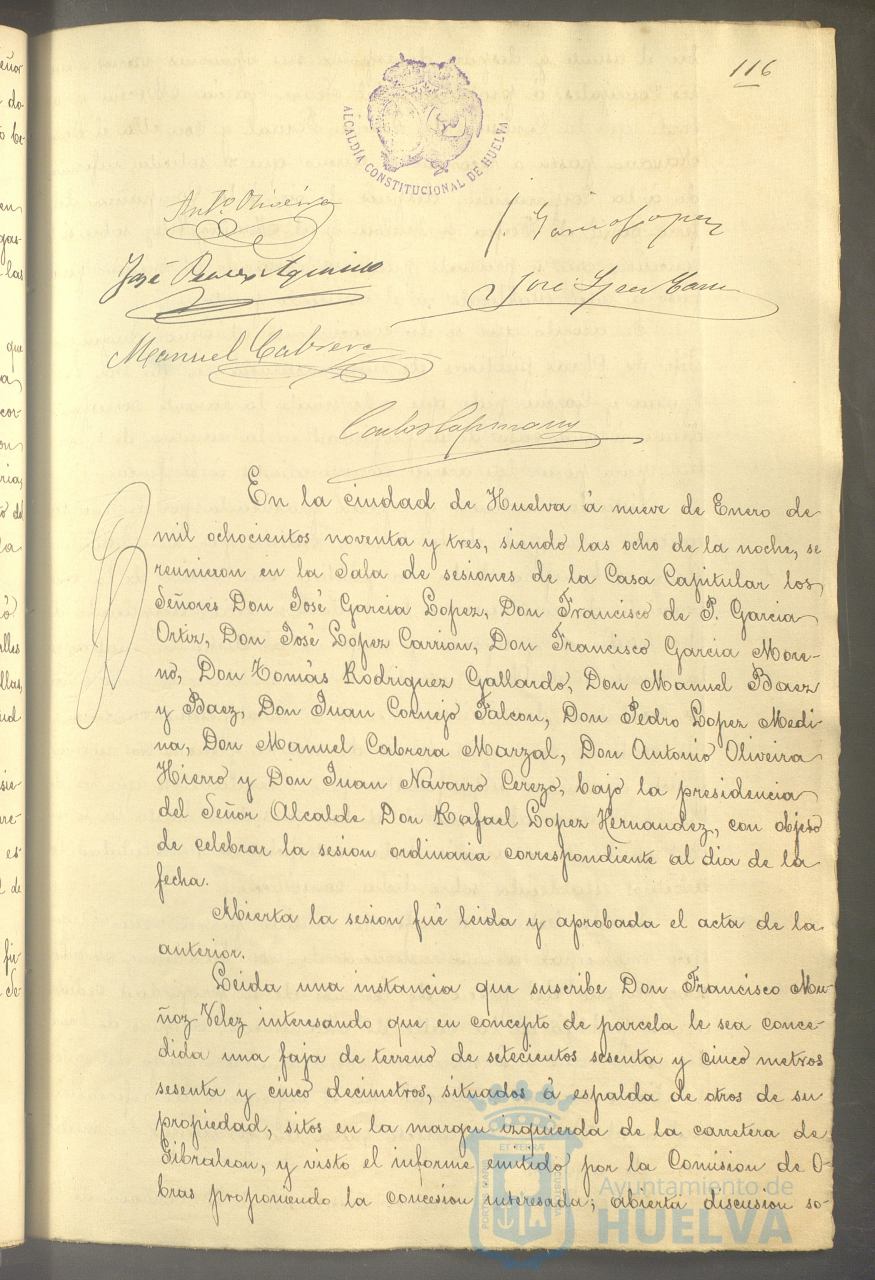 116
ALCALDÍA CONSTITUCIONAL DE HUELVA
Antº Oliveira
J. Garcia Lopez
José
José Lopez
Manuel Cabrera
Carlos
En la ciudad de Huelva á nueve de Enero de
mil ochocientos noventa y tres, siendo las ocho de la noche, se
reunieron en la Sala de sesiones de la Casa Capitular los
Señores Don José Garcia Lopez, Don Francisco de P. Garcia
Ortiz, Don José Lopez Carrion, Don Francisco Garcia More-
no, Don Tomás Rodriguez Gallardo, Don Manuel Baez
y Baez, Don Juan Cornejo Falcon, Don Pedro Lopez Medi-
na, Don Manuel Cabrera Marzal, Don Antonio Oliveira
Hierro y Don Juan Navarro Cerezo, bajo la presidencia
del Señor Alcalde Don Rafael Lopez Hernandez, con objeto
de celebrar la sesion ordinaria correspondiente al dia de la
fecha.
Abierta la sesion fué leida y aprobada el acta de la
anterior.
Leida una instancia que suscribe Don Francisco Mu-
ñoz Velez interesando que en concepto de parcela le sea conce-
dida una faja de terreno de setecientos sesenta y cinco metros
sesenta y cinco decimetros, situados á espalda de otros de su
propiedad, sitos en la margen izquierda de la carretera de
Gibraleon, y visto el informe emitido por la Comision de O-
bras proponiendo la concesion interesada; abierta discusion so-
Ayuntamiento de
HUELVA